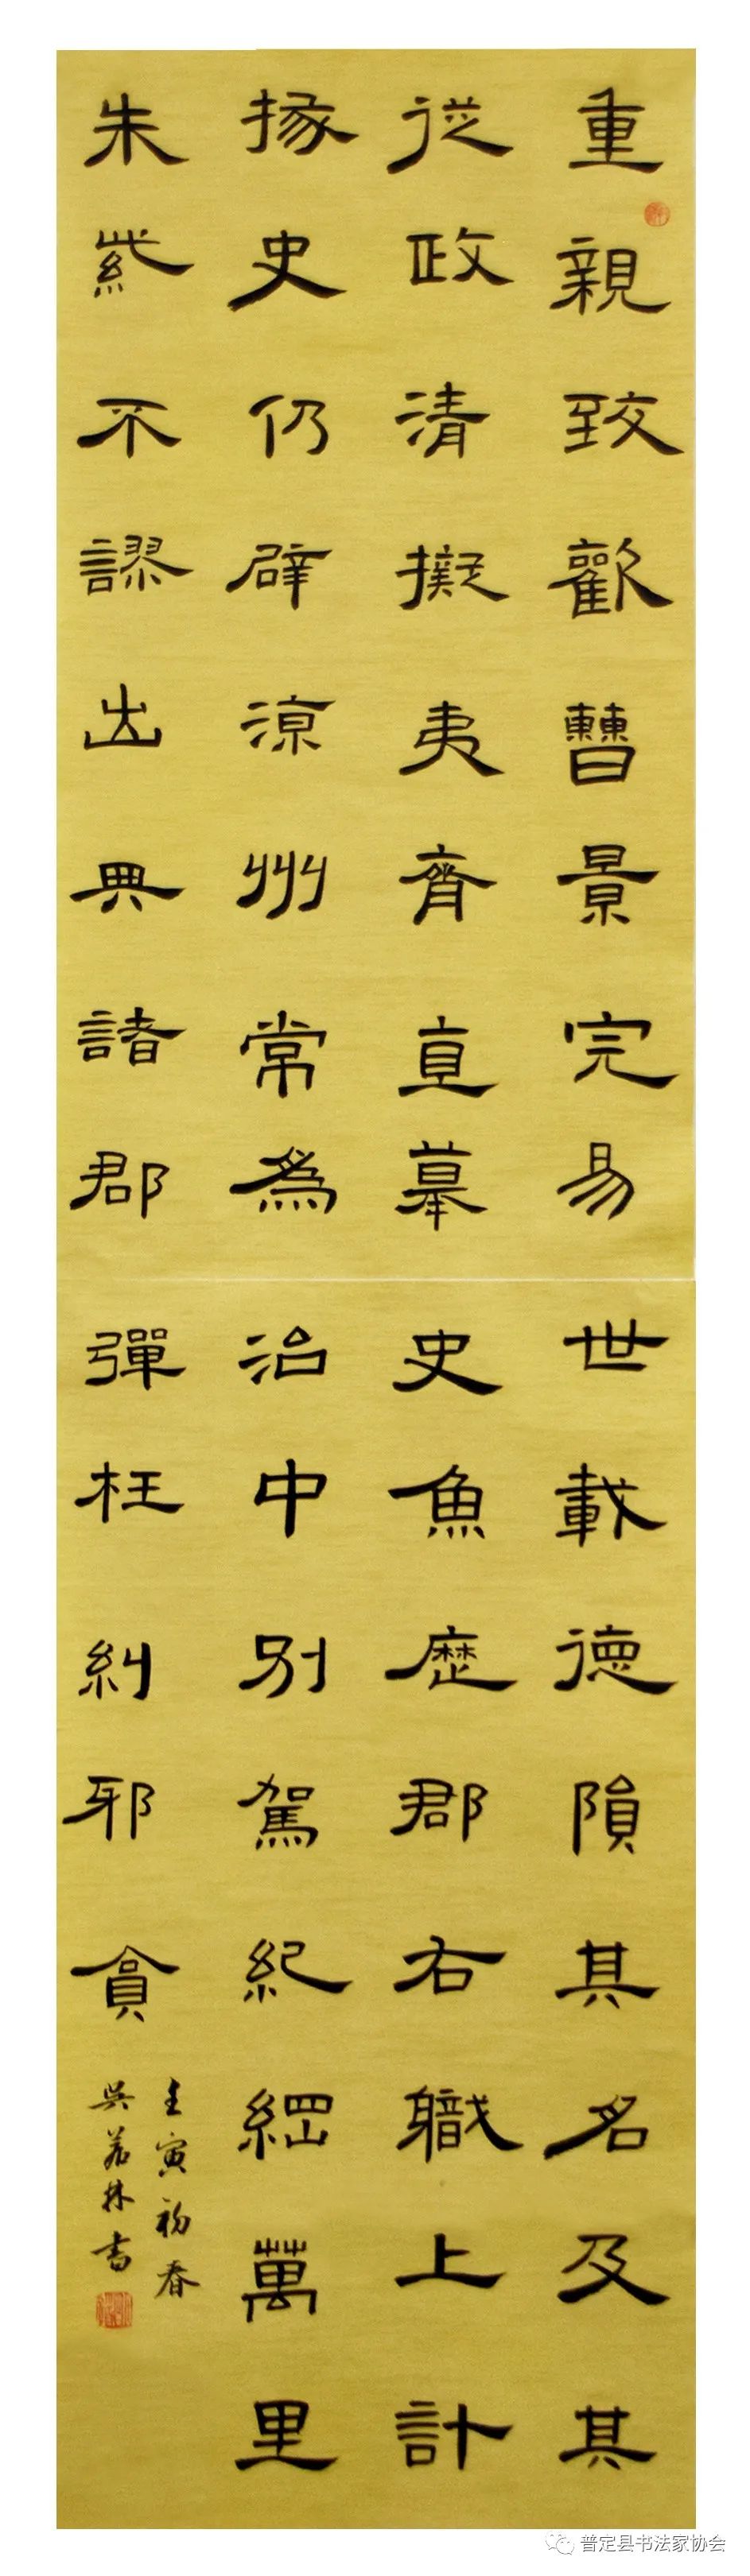 重親致歡曹景完易世載德隕其名及其
從政清擬夷齊直慕史魚歷郡右職上計
掾史仍辟涼州常為治中別駕紀綱萬里
朱紫不謬出典諸郡彈枉糾邪貪
壬寅初春
吳若林書
普定县书法家协会